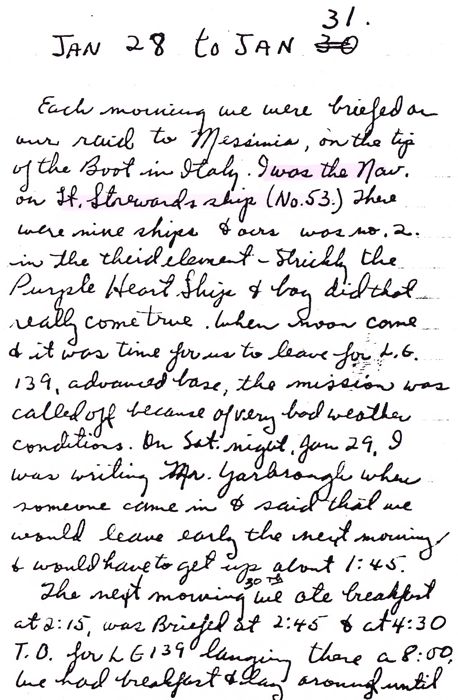 31.
JAN 28 to JAN 30
Each morning we were briefed on
our raid to Messinia, on the tip
of the Boot in Italy. I was the Nav.
on Lt. Strewards ship (No. 53.) There
were nine ships & ours was no. 2.
in the theid element - Strickly the
Purple Heart Ship & boy did that
really come true. When noon come
& it was time for us to leave for L.G.
139, advanced base, the mission was
called off because of very bad weather
conditions. On Sat. night, Jan 29, I
was writing Mr. Yarbrough when
someone came in & said that we
would leave early the next morning
& would have to get up about 1:45.
The next morning 30th we ate breakfast
at 2:15, was Briefed at 2:45 & at 4:30
T.O. for LG 139 langing there a 8:00.
We had breakfast & lay around until